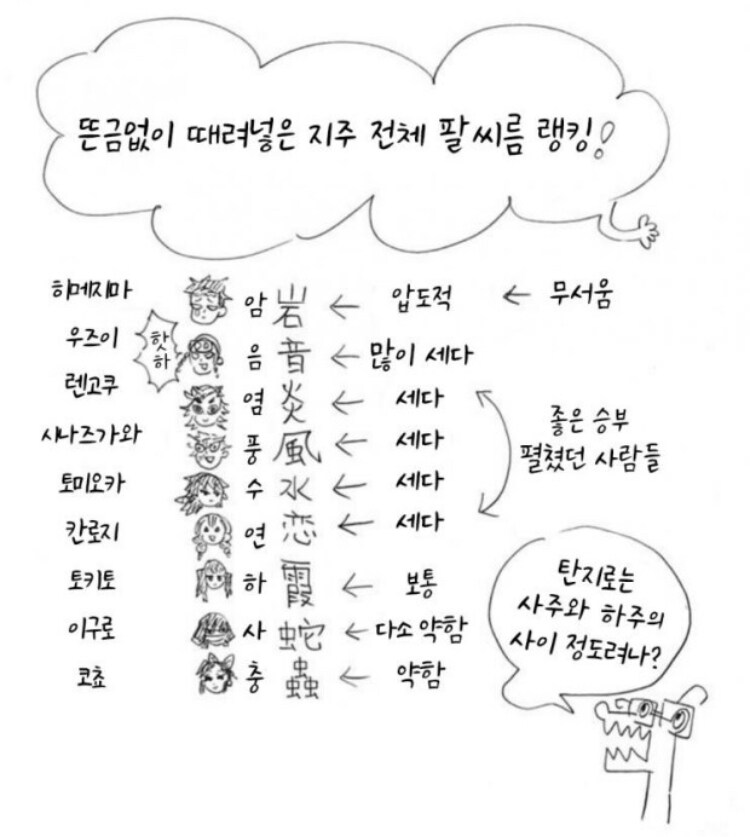 뜬금없이 때려넣은 지주 전체 팔씨름 랭킹!
히메지마 암 岩 ← 압도적 ← 무서움
우즈이 핫하 음 音 ← 많이 세다
렌고쿠 염 炎 ← 세다
시나즈가와 풍 風 ← 세다
토미오카 수 水 ← 세다
칸로지 연 恋 ← 세다
좋은 승부
펼쳤던 사람들
토키토 하 霞 ← 보통
이구로 사 蛇 ← 다소 약함
코쵸 충 蟲 ← 약함
탄지로는
사주와 하주의
사이 정도려나?